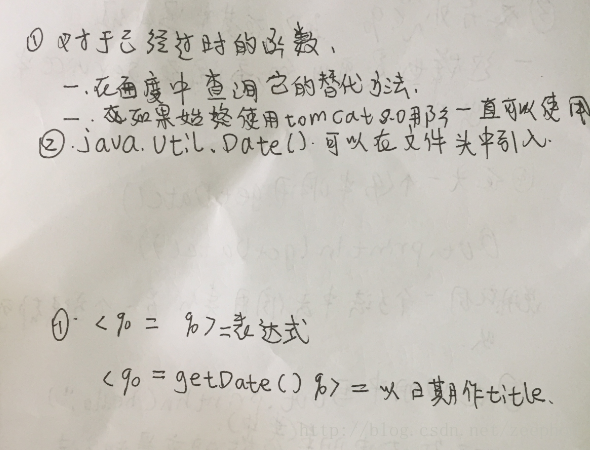 ① 对于已经过时的函数、
一.在百度中查询它的替代方法.
一.在如果始终使用tomcat 9.0那么一直可以使用
②.java.util.Date().可以在文件头中引入.
①. <%= %>=表达式
<%=getDate()%>=以日期作title、
http://blog.csdn.net